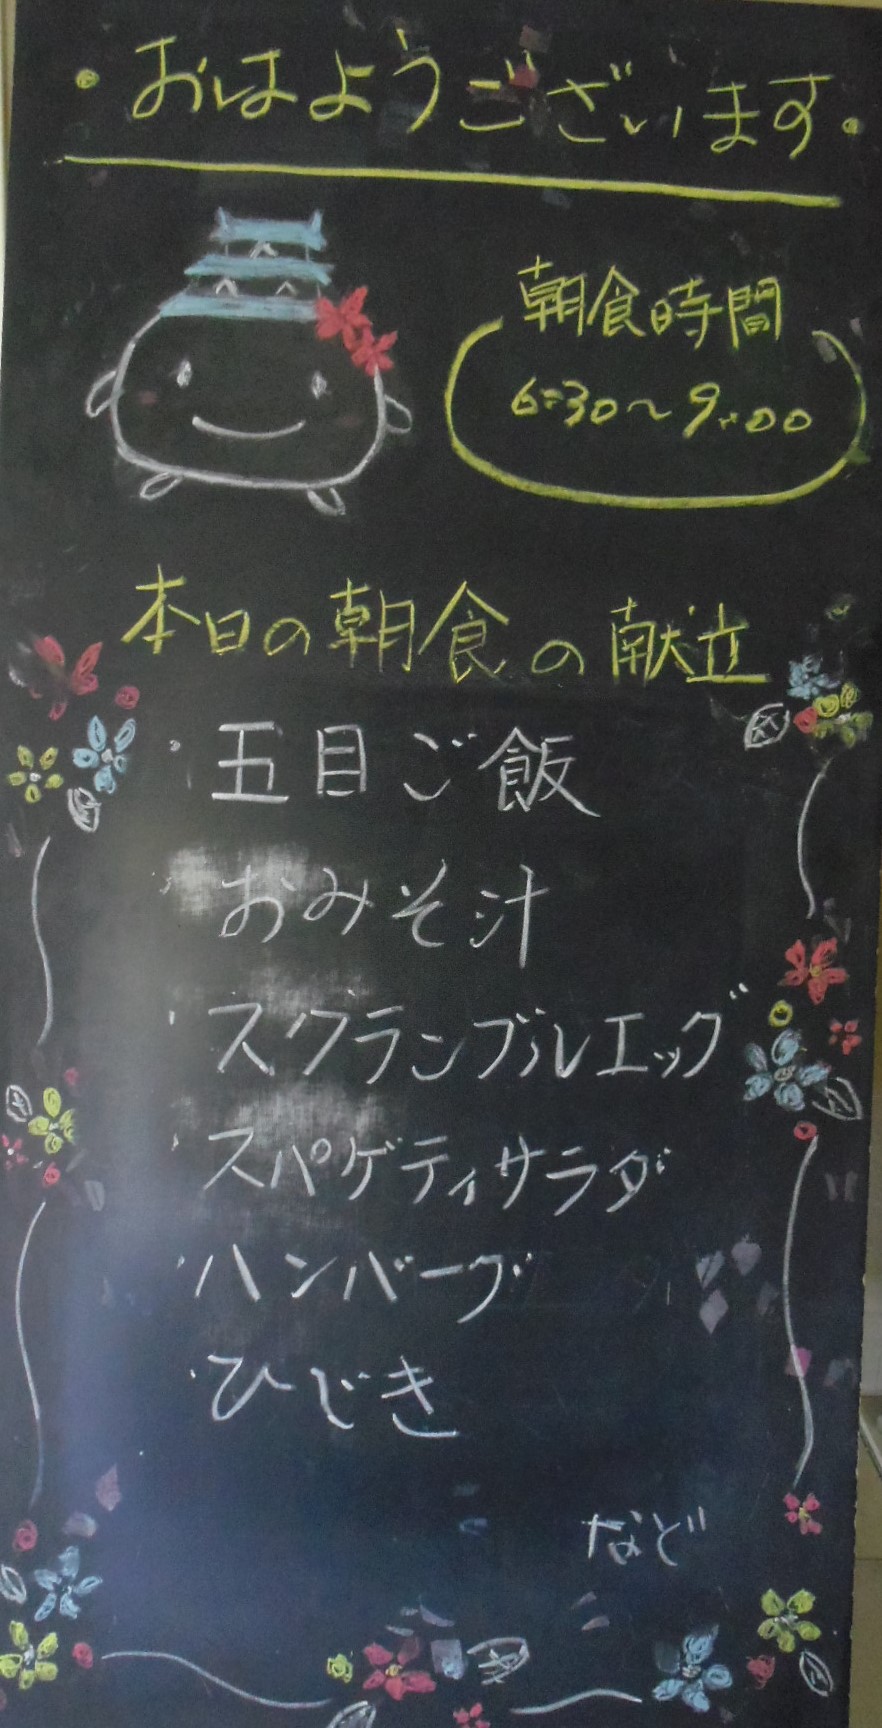 ・おはようございます・
朝食時間
6:30～9:00
本日の朝食の献立
・五目ご飯
・おみそ汁
・スクランブルエッグ
・スパゲティサラダ
・ハンバーグ
・ひじき
など